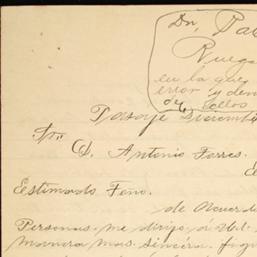 Dn, Pa
Ruega
en la que
error y den
de ellos
Pasaje Diciemb
Sr. D. Antonio Torres.
Estimado Feno.
de acuerdo
Personas me dirijo a Ud.
manera mas sincera.